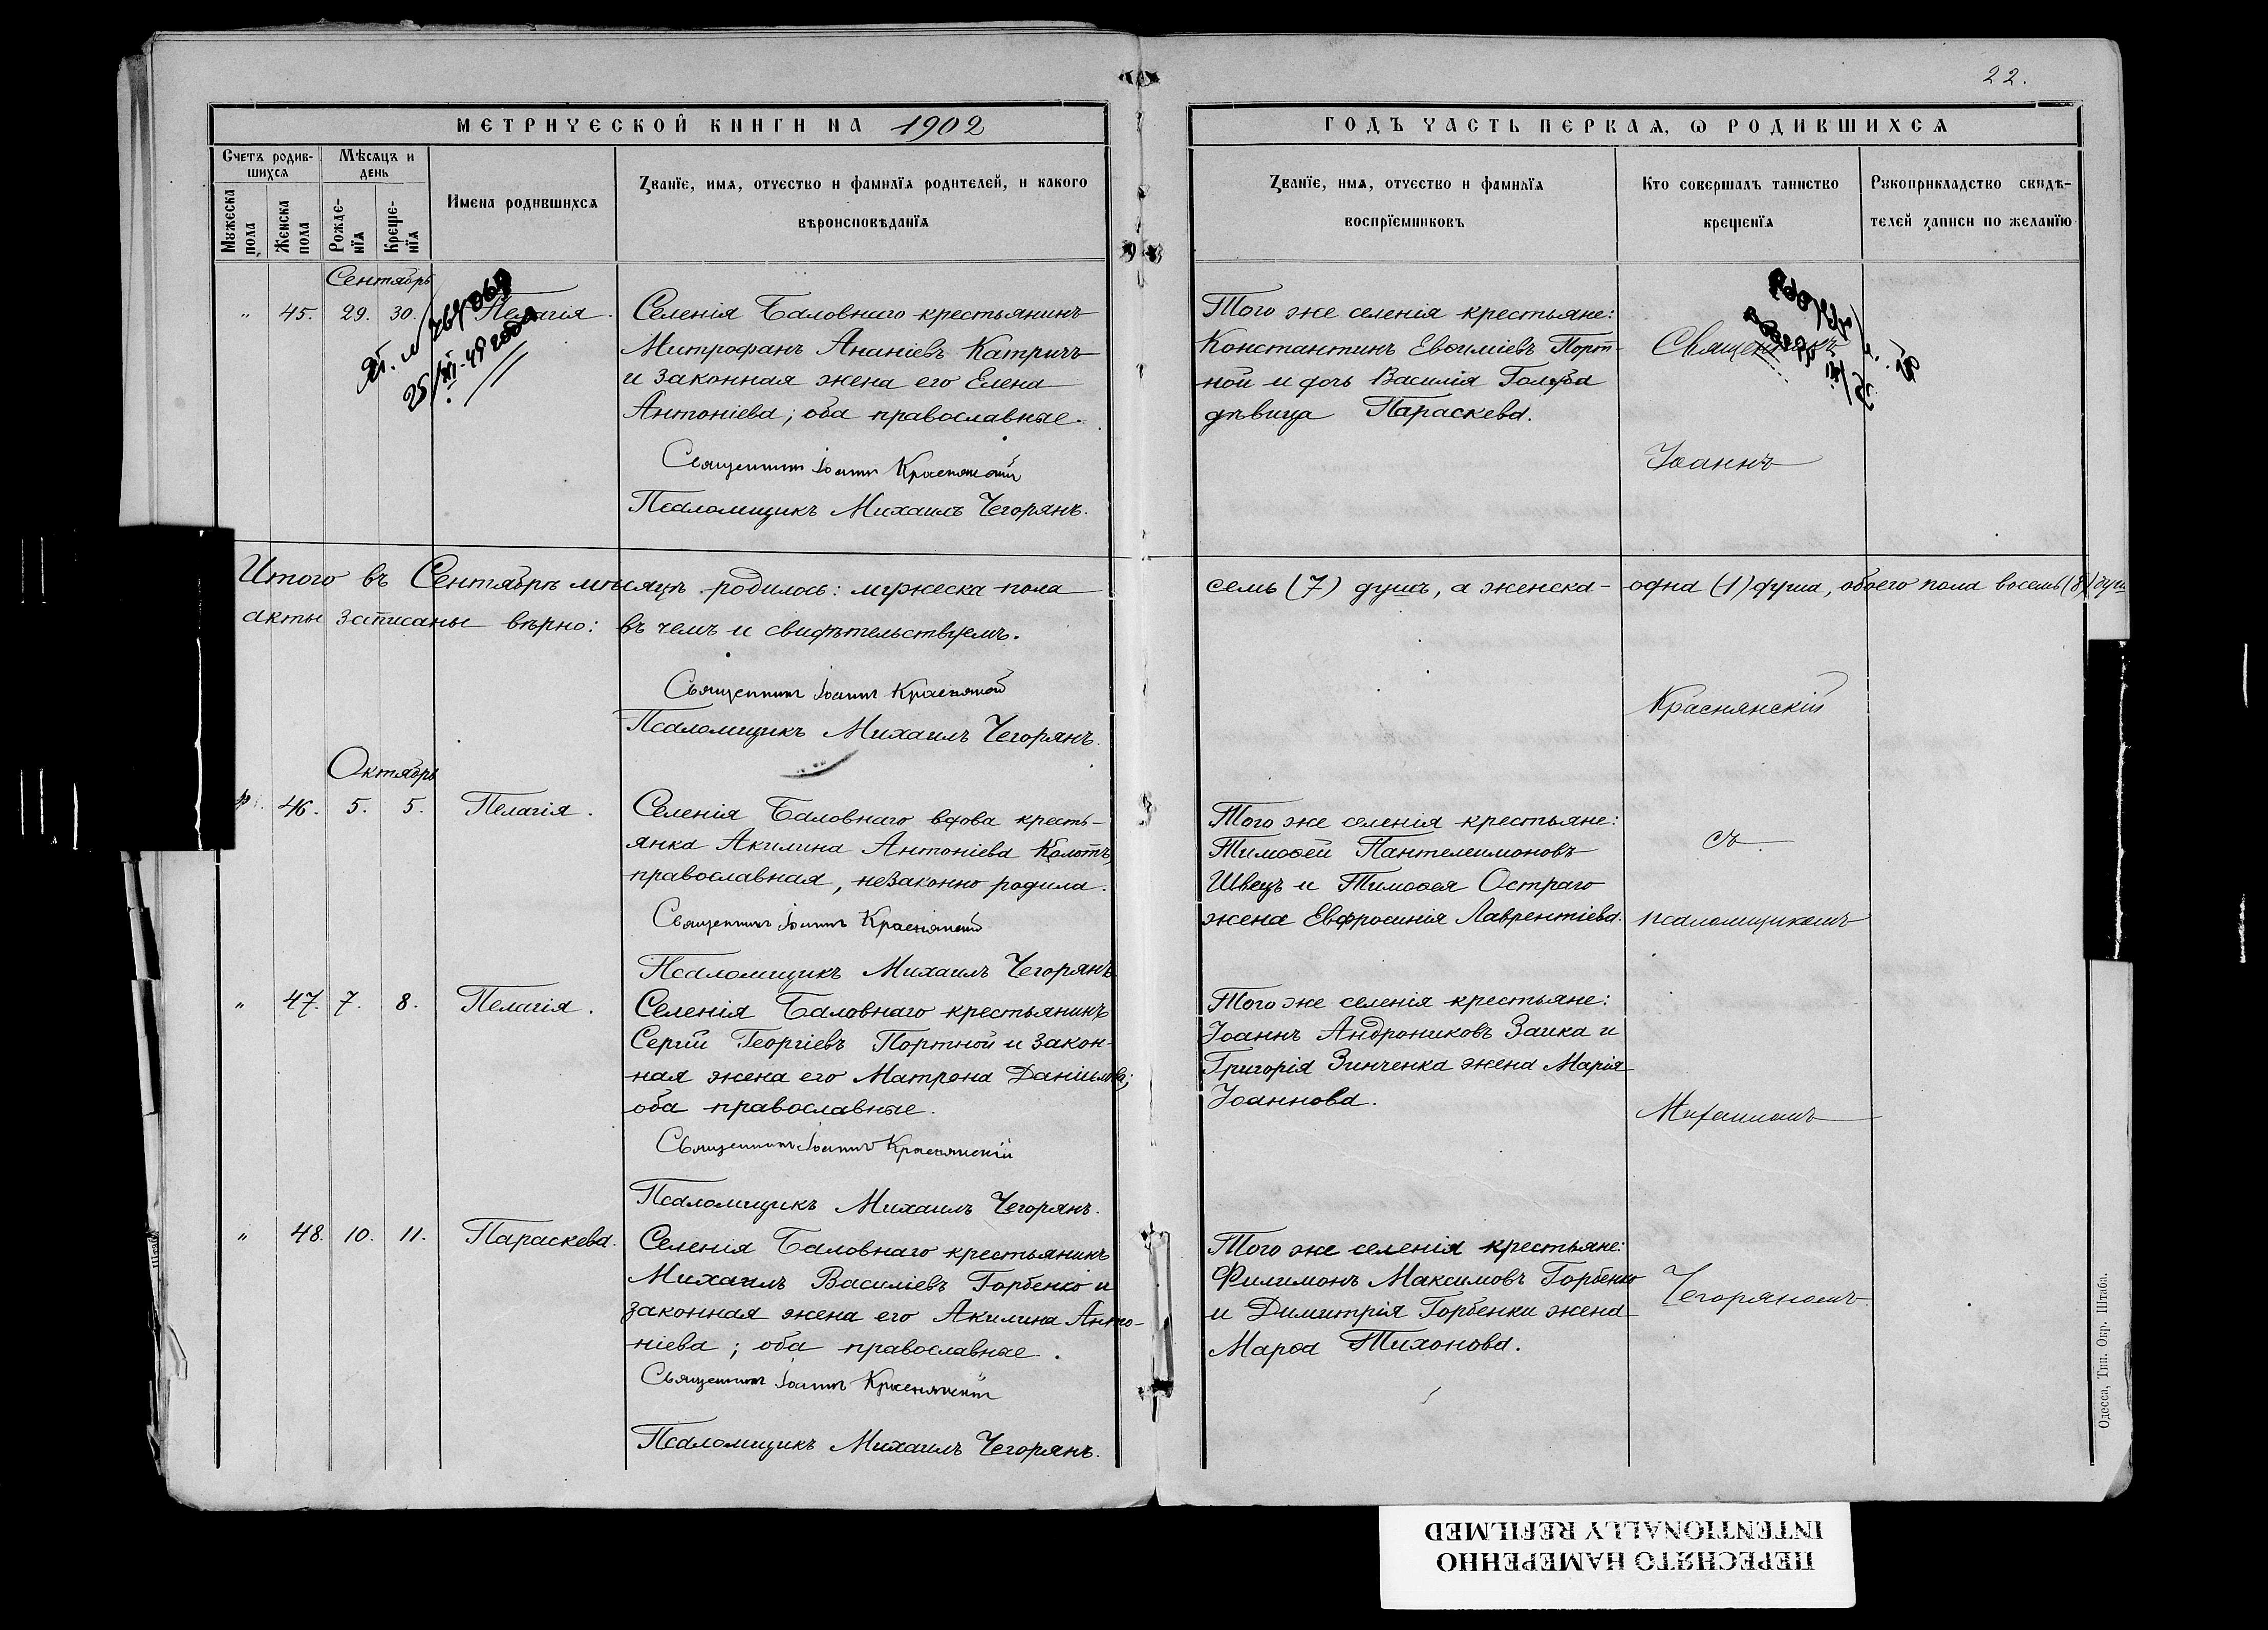 22.
МЕТРИЧЕСКОЙ КНИГИ НА 1902
ГОДЪ ЧАСТЬ ПЕРВАЯ, Ѡ РОДИВШИХСЯ
Счетъ родив-
шихся
Мѣсяцъ и
день
Мужеска
пола
Женска
пола
Рожде-
нїя
Креще-
нїя
Имена родившихся
Званїе, имя, отчество и фамилїя родителей, и какого
вѣроисповѣданїя
Званїе, имя, отчество и фамилїя
воспрїемниковъ
Кто совершалъ таинство
крещенїя
Рукоприкладство свидѣ-
телей записи по желанїю
Сентябрь
" 45. 29. 30. Пелагія.
25/XI-49 года
Селенія Баловнаго крестьянинъ
Митрофанъ Ананіевъ Катричъ
и законная жена его Елена
Антоніева; оба православные.
Священникъ Іоаннъ Краснянскій
Псаломщикъ Михаилъ Чегорянъ.
Того же селенія крестьяне:
Константинъ Евѳиміевъ Порт-
ной и дочь Василія Голуба
дѣвица Параскева.
Священникъ
Іоаннъ
Итого въ Сентябрѣ мѣсяцѣ родилось: мужеска пола семь (7) душъ, а женска - одна (1) душа, обоего пола восемь (8) душ
акты записаны вѣрно: въ чемъ и свидѣтельствуемъ.
Священникъ Іоаннъ Краснянскій
Псаломщикъ Михаилъ Чегорянъ.
Краснянскій
Октябрь
46. 5. 5. Пелагія.
Селенія Баловнаго вдова кресть-
янка Акилина Антоніева
православная, незаконно родила.
Священникъ Іоаннъ Краснянскій
Псаломщикъ Михаилъ Чегорянъ
Того же селенія крестьяне:
Тимоѳей Пантелеимоновъ
Швецъ и Тимоѳея Остраго
жена Евфросинія Лаврентіева.
съ
псаломщикомъ
" 47. 7. 8. Пелагія.
Селенія Баловнаго крестьянинъ
Сергій Георгіевъ Портной и закон-
ная жена его Матрона Даніилова;
оба православные.
Священникъ Іоаннъ Краснянскій
Псаломщикъ Михаилъ Чегорянъ.
Того же селенія крестьяне:
Іоаннъ Андрониковъ Заика и
Григорія Зинченка жена Марія
Іоаннова.
Михаиломъ
" 48. 10. 11. Параскева.
Селенія Баловнаго крестьянинъ
Михаилъ Василіевъ Горбенко и
законная жена его Акилина Анто-
ніева; оба православные.
Священникъ Іоаннъ Краснянскій
Псаломщикъ Михаилъ Чегорянъ.
Того же селенія крестьяне:
Филимонъ Максимовъ Горбенко
и Димитрія Горбенки жена
Марѳа Тихонова.
Чегоряномъ
Одесса, Тип. Окр. Штаба.
ПЕРЕСНЯТО НАМЕРЕННО
INTENTIONALLY REFILMED